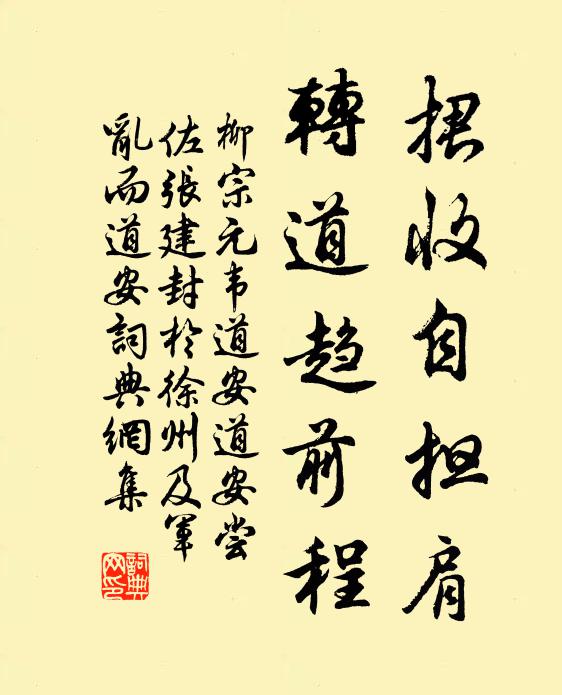 捃收自担肩
轉道趋前程
柳宗元韦道安道安尝
佐張建封於徐州及軍
亂而道安詞典網集
詞典
网印